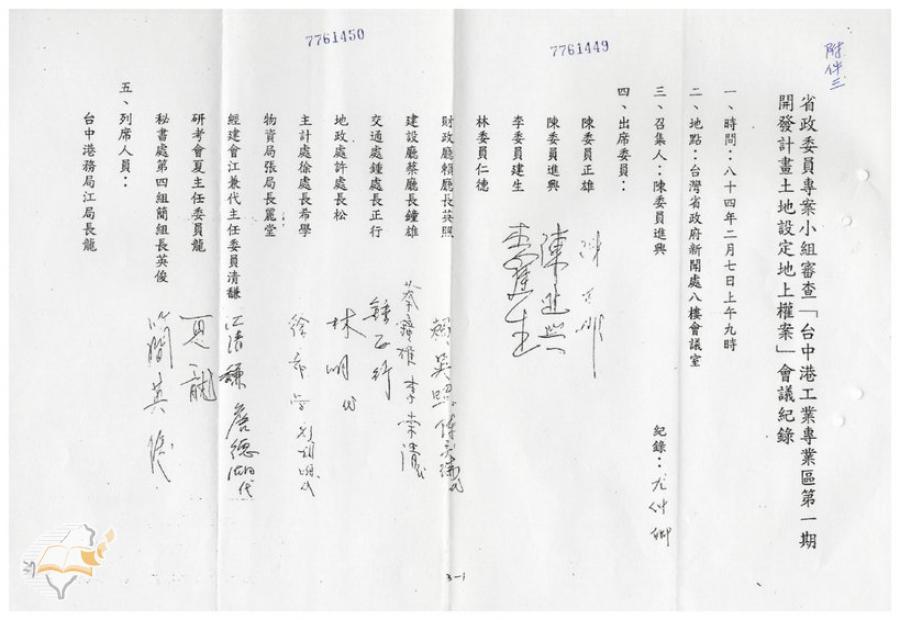 7761450
7761449
附件三
省政委員專案小組審查「台中港工業專業區第一期
開發計畫土地設定地上權案」會議紀錄
一、時間：八十四年二月七日上午九時
二、地點：台灣省政府新聞處八樓會議室
三、召集人：陳委員進興 紀錄：
四、出席委員：
陳委員正雄 陳正雄
陳委員進興 陳進興
李委員建生 李建生
林委員仁德
財政廳賴廳長英照 賴英照
建設廳蔡廳長鐘雄 蔡鐘雄 李榮清
交通處鍾處長正行 鍾正行
地政處許處長松 林明代
主計處徐處長希學 徐希學
物資局張局長麗堂
經建會江兼代主任委員清馦 江清馦 詹德湖代
研考會夏主任委員龍 夏龍
秘書處第四組簡組長英俊 簡英俊
五、列席人員：
台中港務局江局長龍
3-1